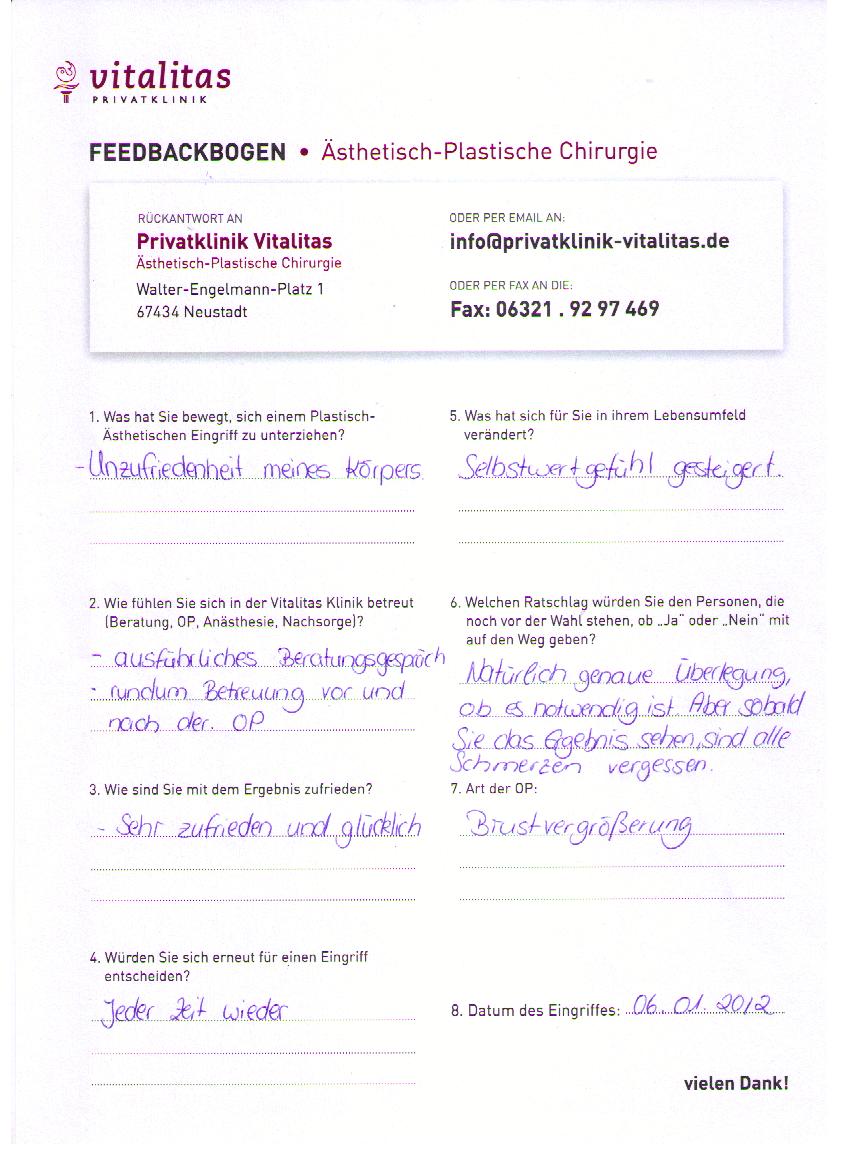 vitalitas
PRIVATKLINIK
FEEDBACKBOGEN • Ästhetisch-Plastische Chirurgie
RÜCKANTWORT AN
Privatklinik Vitalitas
Ästhetisch-Plastische Chirurgie
Walter-Engelmann-Platz 1
67434 Neustadt
ODER PER EMAIL AN:
info@privatklinik-vitalitas.de
ODER PER FAX AN DIE:
Fax: 06321 . 92 97 469
1. Was hat Sie bewegt, sich einem Plastisch-
Ästhetischen Eingriff zu unterziehen?
- Unzufriedenheit meines Körpers
2. Wie fühlen Sie sich in der Vitalitas Klinik betreut
(Beratung, OP, Anästhesie, Nachsorge)?
- ausführliches Beratungsgespräch
- rundum Betreuung vor und
nach der. OP
3. Wie sind Sie mit dem Ergebnis zufrieden?
- Sehr zufrieden und glücklich
4. Würden Sie sich erneut für einen Eingriff
entscheiden?
Jeder Zeit wieder
5. Was hat sich für Sie in ihrem Lebensumfeld
verändert?
Selbstwertgefühl gesteigert.
6. Welchen Ratschlag würden Sie den Personen, die
noch vor der Wahl stehen, ob „Ja" oder „Nein" mit
auf den Weg geben?
Natürlich genaue Überlegung,
ob es notwendig ist. Aber sobald
Sie das Ergebnis sehen, sind alle
Schmerzen vergessen.
7. Art der OP:
Brustvergrößerung
8. Datum des Eingriffes: 06.01.2012
vielen Dank!